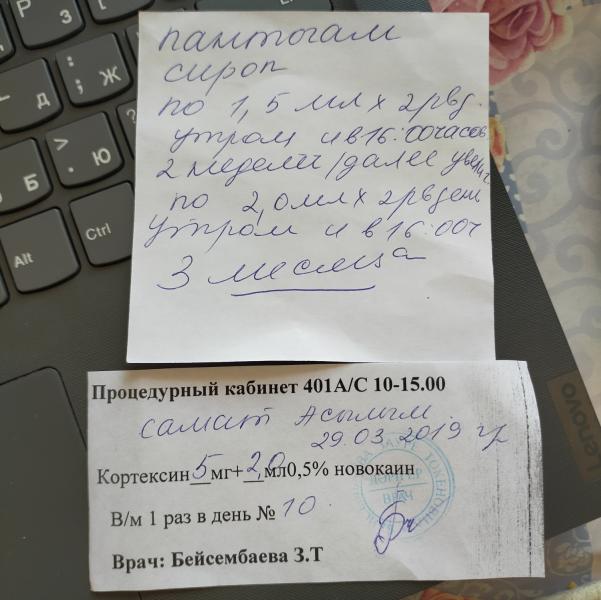 пантогам
сироп
по 1,5 мл х 2рвд.
утром и в 16:00часов
2 недели/далее увелич.
по 2,0мл х 2рвдень
утром и в 16:00ч
3 месяца
Процедурный кабинет 401А/С 10-15.00
Самат Асылым.
29.03.2019 гр
Кортексин 5 мг+ 2,0 мл0,5% новокаин
В/м 1 раз в день № 10
Врач: Бейсембаева З.Т
ВРАЧ
Р
З
Д
Ж
Б
Ю
Alt
Ctrl
Lenovo